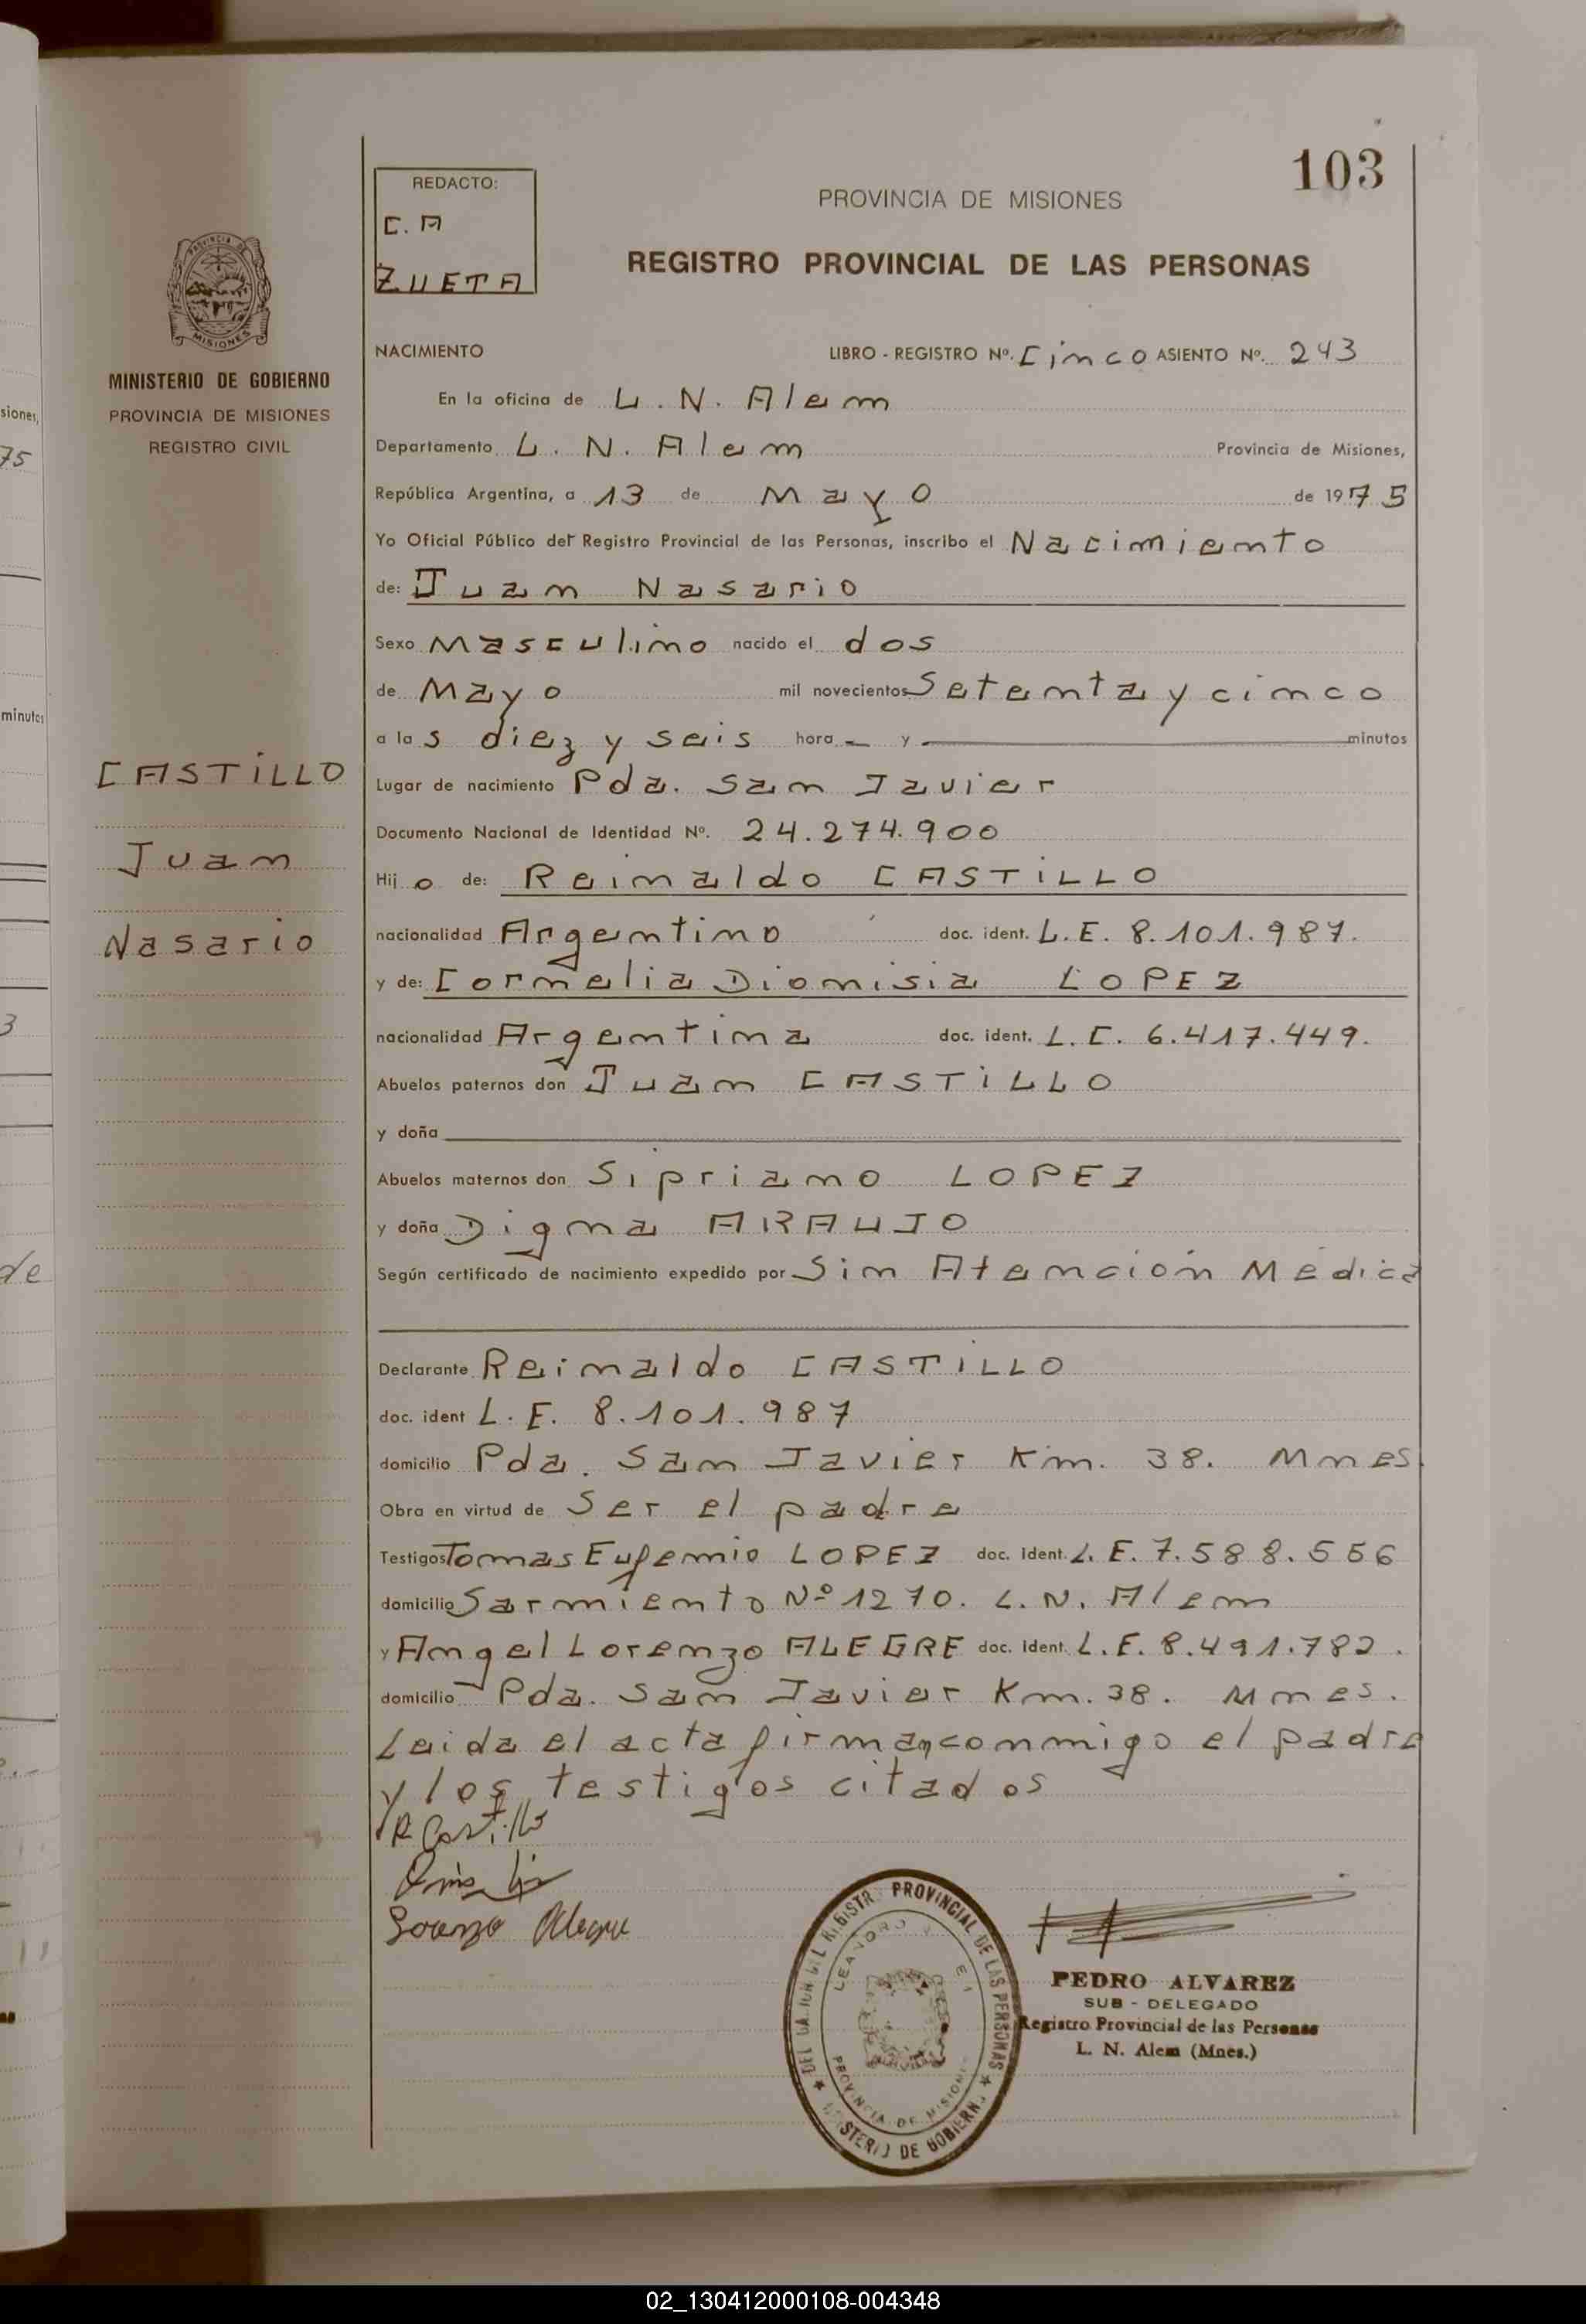 103
REDACTO:
C.A
ZUETA
PROVINCIA DE MISIONES
REGISTRO PROVINCIAL DE LAS PERSONAS
PROVINCIA DE
MISIONES
MINISTERIO DE GOBIERNO
PROVINCIA DE MISIONES
REGISTRO CIVIL
siones,
75
minutos
3
de
CASTILLO
Juan
Nasario
NACIMIENTO LIBRO - REGISTRO Nº. Cinco ASIENTO Nº. 243
En la oficina de L. N. Alem
Departamento L. N. Alem Provincia de Misiones,
República Argentina, a 13 de Mayo de 1975
Yo Oficial Público del Registro Provincial de las Personas, inscribo el Nacimiento
de: Juan Nasario
Sexo Masculino nacido el dos
de Mayo mil novecientos Setenta y cinco
a las diez y seis hora — y — minutos
Lugar de nacimiento Pda. San Javier
Documento Nacional de Identidad Nº. 24.274.900
Hijo de: Reinaldo CASTILLO
nacionalidad Argentino doc. ident. L.E. 8.101.987.
y de: Cornelia Dionisia LOPEZ
nacionalidad Argentina doc. ident. L.C. 6.417.449.
Abuelos paternos don Juan CASTILLO
y doña
Abuelos maternos don Sipriano LOPEZ
y doña Digna ARAUJO
Según certificado de nacimiento expedido por Sin Atención Médica
Declarante Reinaldo CASTILLO
doc. ident L.E. 8.101.987
domicilio Pda. San Javier Km. 38. Mnes.
Obra en virtud de Ser el padre
Testigos Tomas Eufemio LOPEZ doc. ident. L.E. 7.588.556
domicilio Sarmiento Nº 1270. L.N. Alem
y Angel Lorenzo ALEGRE doc. ident. L.E. 8.491.782.
domicilio Pda. San Javier Km. 38. Mnes.
Leida el acta firman conmigo el padre
y los testigos citados
R Castillo
Lorenzo Alegre
REGISTR PROVINCIAL DE LAS PERSONAS
LEANDRO
PROVINCIA DE MISIONES
DE GOBIERN
PEDRO ALVAREZ
SUB - DELEGADO
Registro Provincial de las Personas
L. N. Alem (Mnes.)
02_130412000108-004348